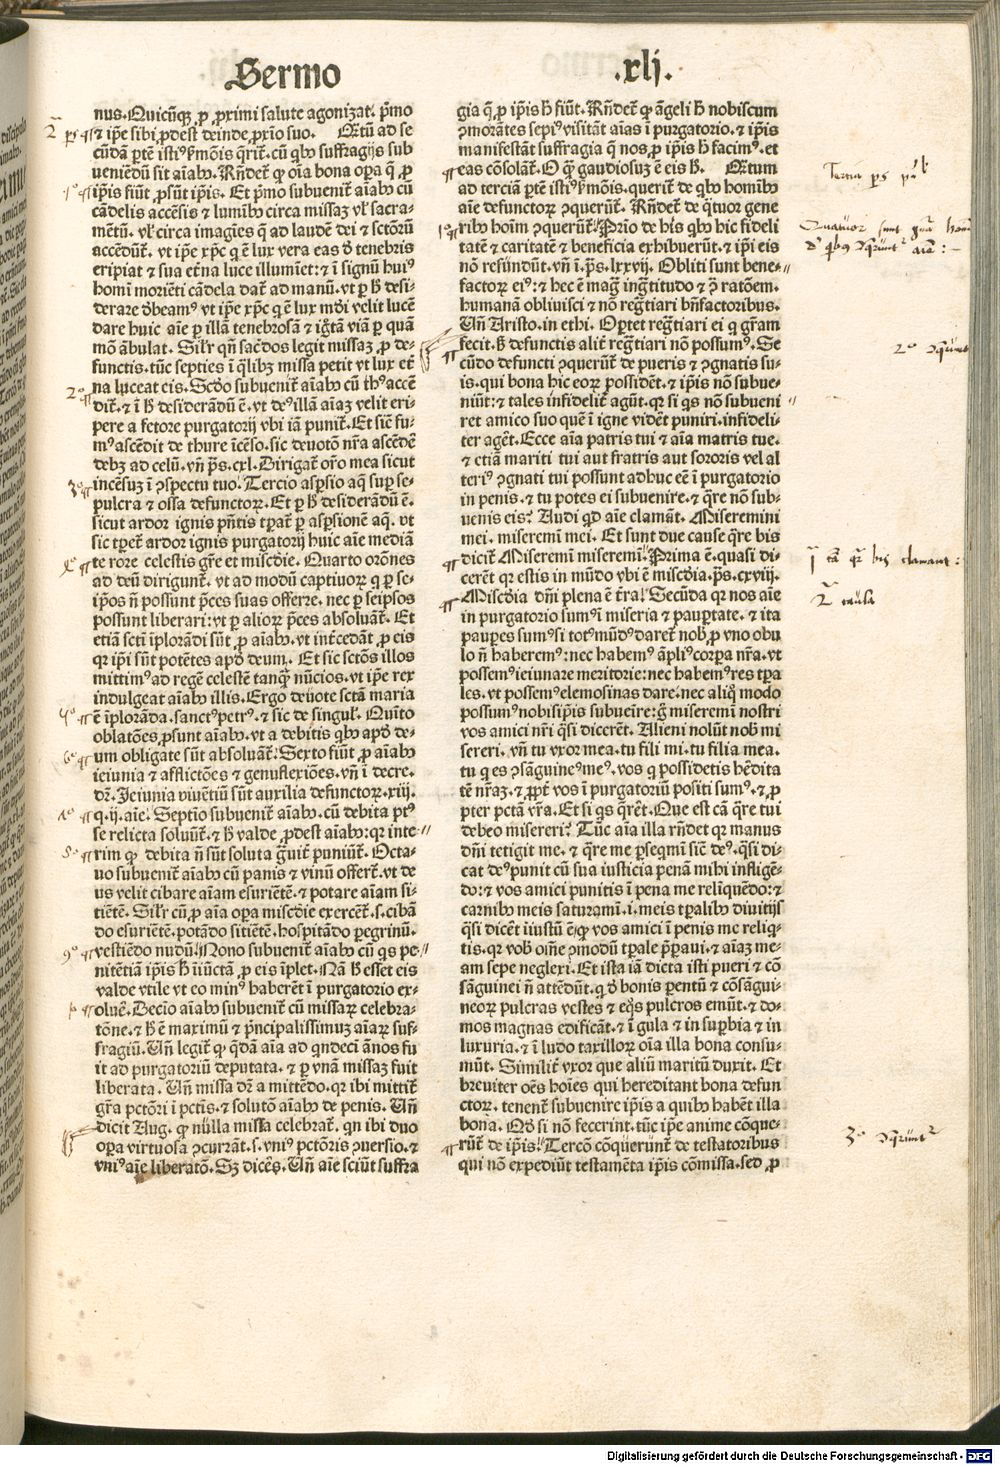 Sermo .xlj.
nus. Quicũq̃ ꝓ ꝓximi salute agonizat. p̃mo
⁊ ip̃e sibi ꝓdest deinde ꝓxio suo. Qr̃tũ ad se
cũdam p̃tẽ istiꝰ ẜmõis q̃rit̃. cũ qbꝰ suffragijs sub
ueniẽdũ sit aĩabꝰ. Rñdet̃ ꝙ oĩa bona oꝑa q̃ ꝓ
ip̃is fiũt ꝓsũt ip̃is. Et p̃mo subuenit̃ aĩabꝰ cũ
cãdelis accẽsis ⁊ lumĩbꝰ circa missaꝫ vl̓ sacra-
mẽtũ. vl̓ circa imagĩes q̃ ad laudẽ dei ⁊ sctõrũ
accẽdũt̃. vt ip̃e xp̃c q̃ ẽ lux vera eas d̓ tenebris
eripiat ⁊ sua et̃na luce illumiet: ⁊ ĩ signũ huiꝰ
homĩ moriẽti cãdela dat̃ ad manũ. vt ꝑ ħ desi-
derare d̓beamꝰ vt ip̃e xp̃c q̃ ẽ lux mũdi velit lucẽ
dare huic aĩe ꝑ illã tenebrosã ⁊ ig̃tã viã ꝑ quã
mõ ãbulat. Sil̓r qñ sac̓dos legit missaꝫ ꝓ de-
functis. tũc septies ĩ q̃libꝫ missa petit vt lux et̃
na luceat eis. Scd̓o subuenit̃ aĩabꝰ cũ thꝰ accẽ
dit̃. ⁊ ĩ ħ desiderãdũ ẽ. vt deꝰ illã aĩaꝫ velit eri-
pere a fetore purgatorij vbi iã punit̃. Et sic̃ fu-
mꝰ ascẽdit de thure ĩcẽso. sic deuotõ nr̃a ascẽdẽ
debꝫ ad celũ. vñ p̃s. cxl. Dirigat̃ or̃o mea sicut
incẽsuꝫ ĩ ↄspectu tuo. Tercio asꝑsio aq̃ suꝑ se-
pulcra ⁊ ossa defunctoꝝ. Et ꝑ ħ desiderãdũ ẽ.
sicut ardor ignis p̃ñtis tꝑat̃ ꝑ asꝑsionẽ aq̃. vt
sic tꝑet̃ ardor ignis purgatorij huic aĩe mediã
te rore celestis gr̃e et misc̃die. Quarto or̃ones
ad deũ dirigunt̃. vt ad modũ captiuoꝝ q ꝑ se-
ip̃os ñ possunt p̃ces suas offerre. nec ꝑ seip̃sos
possunt liberari: vt ꝑ alioꝝ p̃ces absoluãt̃. Et
etiã scti ĩplorãdi sũt ꝓ aĩabꝰ. vt int̃cedãt ꝓ eis
qr ip̃i sũt potẽtes apd̓ deum. Et sic sctõs illos
mittimꝰ ad regẽ celestẽ tanq̃ nũcios. vt ip̃e rex
indulgeat aĩabꝰ illis. Ergo deuote sctã maria
ẽ ĩplorãda. sanctꝰ petrꝰ. ⁊ sic de singul̓. Quĩto
oblatões ꝓsunt aĩabꝰ. vt a debitis qbꝰ apd̓ de-
um obligate sũt absoluãt̃. Sexto fiũt ꝓ aĩabꝰ
ieiunia ⁊ afflictões ⁊ genuflexiões. vñ ĩ decre.
dr̃. Ieiunia viuẽtiũ sũt auxilia defunctoꝝ. xiij.
q. ij. aĩe. Septio subuenit̃ aĩabꝰ. cũ debita ptꝰ
se relicta soluũt̃. ⁊ ħ valde ꝓdest aĩabꝰ: qr inte-
rim ꝙ debita ñ sũt soluta g̃uit̃ puniũt̃. Octa-
uo subuenit̃ aĩabꝰ cũ panis ⁊ vinũ offert̃. vt de-
us velit cibare aĩam esuriẽtẽ. ⁊ potare aĩam si-
tiẽtẽ. Sil̓r cũ ꝓ aĩa oꝑa misc̃die exercẽt̃. s. cibã
do esuriẽtẽ. potãdo sitiẽtẽ. hospitãdo ꝑegrinũ.
vestiẽdo nudũ. Nono subuenit̃ aĩabꝰ cũ qs pe-
nitẽtiã ip̃is ħ iiũctã ꝓ eis ĩplet. Nã ħ esset eis
valde vtile vt eo minꝰ haberẽt ĩ purgatorio ex-
oluẽ. Decĩo aĩabꝰ subuenit̃ cũ missaꝝ celebra-
tõne. ⁊ ħ ẽ maximũ ⁊ p̃ncipalissimuꝫ aĩaꝝ suf-
fragiũ. Uñ legit̃ ꝙ q̃dã aĩa ad qndeci ãnos fu
it ad purgatoriũ deputata. ⁊ ꝑ vnã missaꝫ fuit
liberata. Uñ missa dr̃ a mittẽdo. qr ibi mittit̃
gr̃a pctõri ĩ pctĩs. ⁊ solutõ aĩabꝰ de penis. Uñ
dicit Aug. ꝙ nũlla missa celebrat̃. qn ibi duo
oꝑa virtuosa ↄcurãt. s. vniꝰ pctõris ↄuersio. ⁊
vniꝰ aĩe liberatõ. Sꝫ dicẽs. Uñ aĩe sciũt suffra
gia q̃ ꝓ ip̃is ħ fiũt. Rñdet̃ ꝙ ãgeli ħ nobiscum
ↄmorãtes sepiꝰ visitãt aĩas ĩ purgatorio. ⁊ ip̃is
manifestãt suffragia q̃ nos ꝓ ip̃is ħ facimꝰ. et
eas cõsolãt̃. O q̃ꝫ gaudiosuꝫ ẽ eis ħ. Qr̃tum
ad terciã ꝑtẽ istiꝰ ẜmõis. querit̃ de qbꝰ homĩbꝰ
aĩe defunctoꝝ ↄquerũt̃. Rñdet̃ de q̃tuor gene
ribꝰ hoĩm ↄquerũt̃. Prĩo de hĩs qbꝰ hic fideli
tatẽ ⁊ caritatẽ ⁊ beneficia exhibuerũt. ⁊ ip̃i eis
nõ refũndũt. vñ ĩ. p̃s. lxxvij. Obliti sunt bene-
factoꝝ eiꝰ: ⁊ hec ẽ mag̃ ing̃titudo ⁊ ↄ̃ ratõem.
humanã obliuisci ⁊ nõ reg̃tiari bñfactoribus.
Uñ Aristo. in ethi. Oꝑtet reg̃tiari ei q gr̃am
fecit. sꝫ defunctis alit̃ reg̃tiari nõ possumꝰ. Se
cũdo defuncti ↄquerũt̃ de pueris ⁊ ↄgnatis su-
is. qui bona hic eoꝝ possidẽt. ⁊ ip̃is nõ subue-
niũt: ⁊ tales infidelit̃ agũt. qr si qs nõ subueni
ret amico suo quẽ ĩ igne vidẽt puniri. infideli-
ter agẽt. Ecce aĩa patris tui ⁊ aĩa matris tue.
⁊ etiã mariti tui aut fratris aut sororis vel al
teriꝰ ↄgnati tui possunt adhuc eẽ ĩ purgatorio
in penis. ⁊ tu potes ei subuenire. ⁊ q̃re nõ sub-
uenis eis? Audi qd aĩe clamãt. Miseremini
mei. miseremĩ mei. Et sunt due cause q̃re bis
dicit̃ Miseremĩ miseremĩ. Prima ẽ. quasi di-
cerẽt qr estis in mũdo vbi ẽ misc̃dia. p̃s. cxviij.
Misc̃dia dñi plena ẽ t̃ra. Secũda qr nos aĩe
in purgatorio sumꝰ ĩ miseria ⁊ pauꝑtate. ⁊ ita
pauꝑes sumꝰ si totꝰ mũdꝰ daret̃ nob̓ ꝓ vno obu
lo ñ haberemꝰ: nec habemꝰ ãpliꝰ corꝑa nr̃a. vt
possemꝰ ieiunare meritorie: nec habemꝰ res tꝑa
les. vt possemꝰ elemosinas dare. nec aliq̊ modo
possumꝰ nobisip̃is subueĩre: g̊ miseremĩ nostri
vos amici nr̃i q̃si dicerẽt. Alieni nolũt nob̓ mi
sereri. vñ tu vxor mea. tu fili mi. tu filia mea.
tu q es ↄsãguineꝰ meꝰ. vos q possidetis hẽdita
tẽ nr̃aꝫ. ⁊ ꝓpt̃ vos ĩ purgatoriũ positi sumꝰ. ⁊ ꝓ
pter pctã vr̃a. Et si qs q̃rẽt. Que est cã q̃re tui
debeo misereri? Tũc aĩa illa rñdet qr manus
dñi tetigit me. ⁊ q̃re me ꝑseqmĩ sic̃ deꝰ. q̃si di-
cat deꝰ punit cũ sua iusticia penã mihi infligẽ-
do: ⁊ vos amici punitis ĩ pena me reliquẽdo: ⁊
carnibꝰ meis saturamĩ. i. meis tꝑalibꝰ diuitijs
q̃si dicẽt iiustũ ẽ ꝙ vos amici ĩ penis me reliq-
tis. qr vob̓ oĩñe ↄmodũ tꝑale p̃paui. ⁊ aĩaꝫ me-
am sepe neglexi. Et ista iã dicta isti pueri ⁊ cõ
sãguinei ñ attẽdũt. q d̓ bonis parentũ ⁊ cõsãgui-
neoꝝ pulcras vestes ⁊ eq̊s pulcros emũt. ⁊ do-
mos magnas edificãt. ⁊ ĩ gula ⁊ in suꝑbia ⁊ in
luxuria. ⁊ ĩ ludo taxilloꝝ oĩa illa bona consu-
mũt. Similit̃ vxor que aliũ maritũ duxit. Et
breuiter oẽs hoĩes qui hereditant bona defun
ctoꝝ. tenent̃ subuenire ip̃is a quibꝰ habẽt illa
bona. Qd̓ si nõ fecerint. tũc ip̃e anime cõque-
rũt̃ de ip̃is. Tercõ cõquerũnt̃ de testatoribus
qui nõ expediũt testamẽta ip̃is cõmissa. sed ꝓ
Digitalisierung gefördert durch die Deutsche Forschungsgemeinschaft - DFG